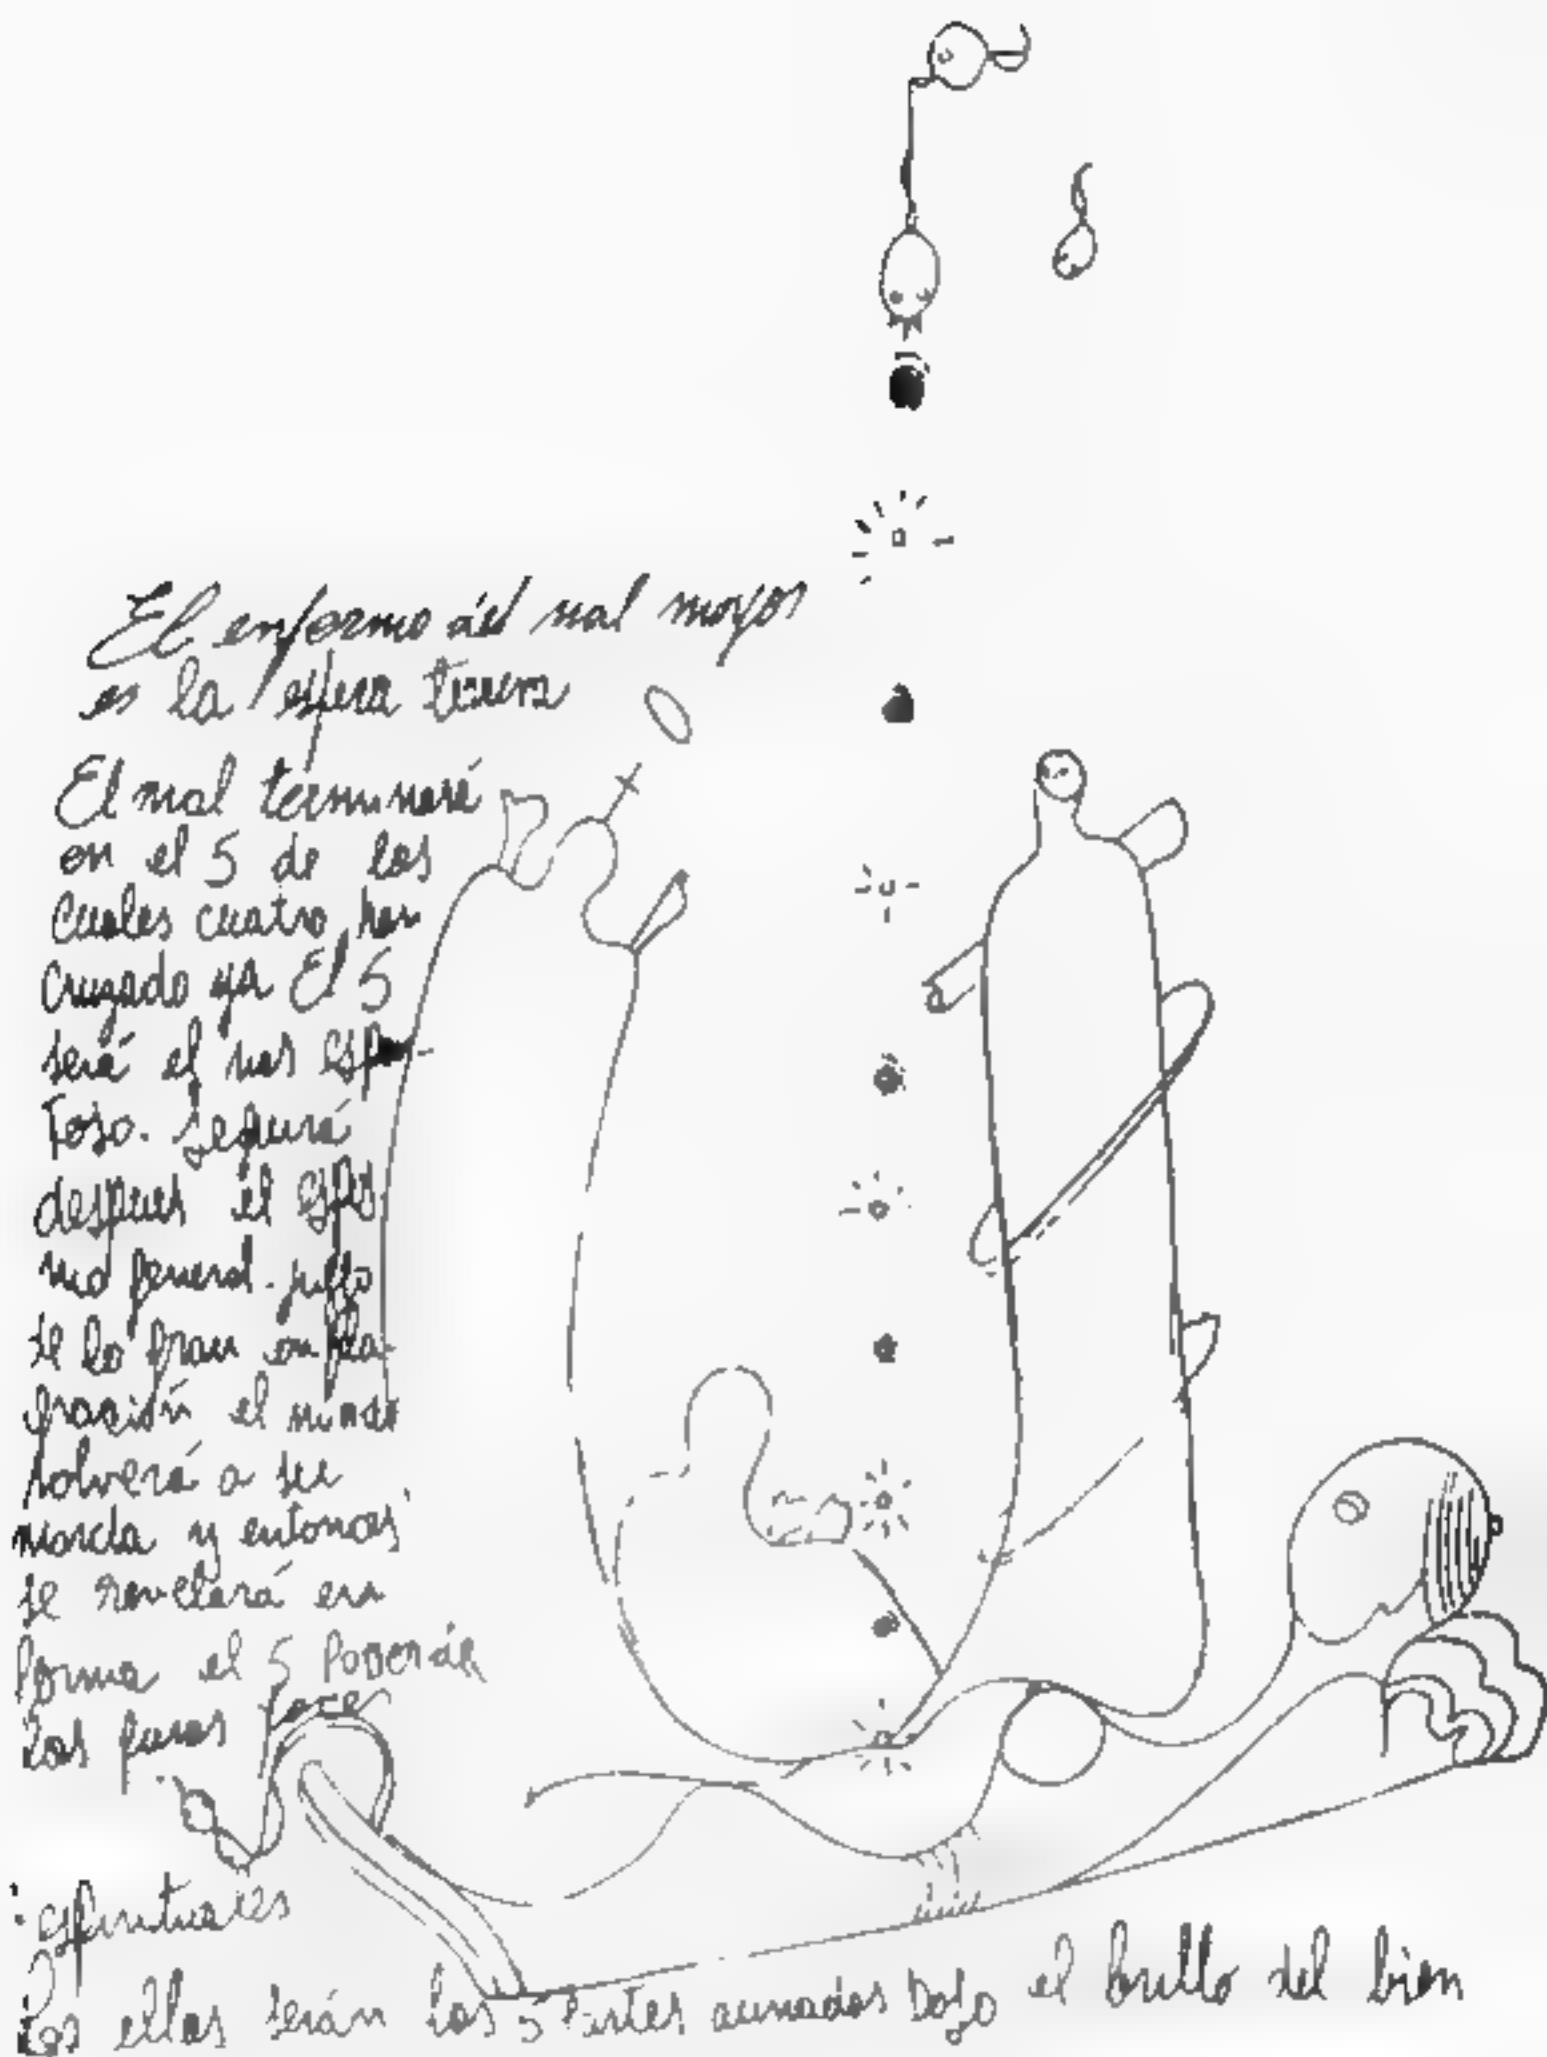 El enfermo del mal mayor
es la esfera terrena
El mal terminará
en el 5 de los
Cuales cuatro han
Cruzado ya El 5
será el mas espan-
toso. Seguirá
despues el
general.
se lo gran confla-
gración el mundo
volverá a su
marcha y entonces
se revelará en
forma el 5 Poder de
las puras
espirituales
ellas serán los 5 aunados bajo el brillo del bien